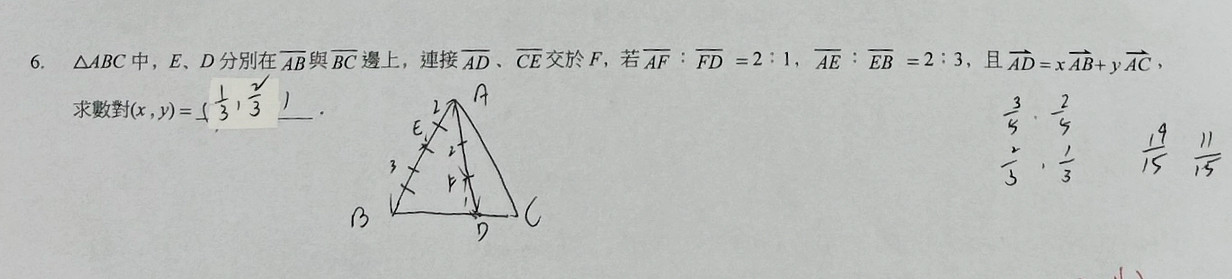 6. △ABC 中，E、D 分別在 AB 與 BC 邊上，連接 AD、CE 交於 F，若 AF：FD = 2：1，AE：EB = 2：3，且 AD = x AB + y AC，
求數對(x , y) = ( 1/3 , 2/3 ) .
A
2
E
3
2
F
1
B
D
C
3/5 . 2/5
2/3 , 1/3
19/15 11/15